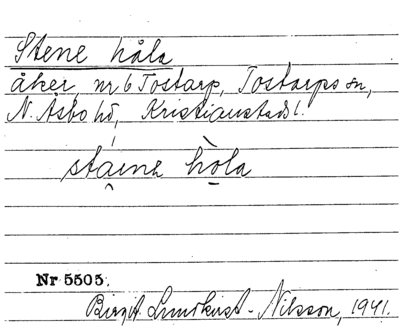 Stene håla
åker, nr 6 Tostarp, Tostarps sn,
N. Åsbo hd, Kristianstads l.
stáine hòla
Nr 5505.
Birgit Lundkvist-Nilsson, 1941.